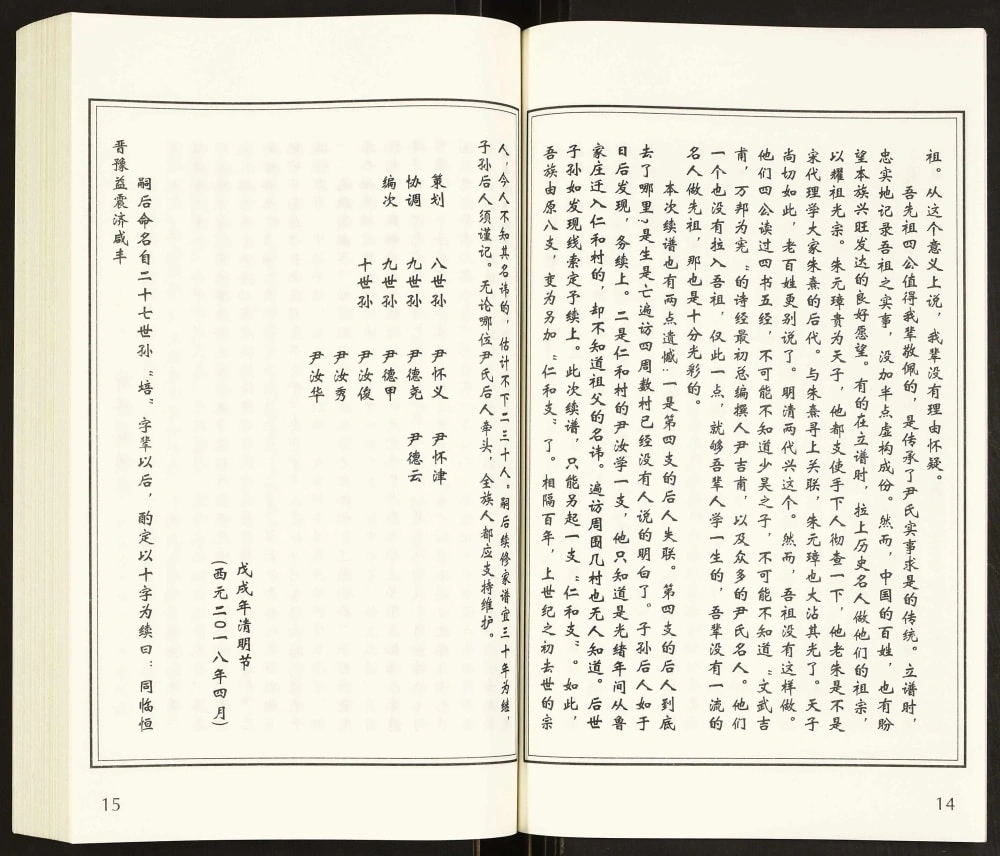 祖。从这个意义上说，我辈没有理由怀疑。
吾先祖四公值得我辈敬佩的，是传承了尹氏实事求是的传统。立谱时，
忠实地记录吾祖之实事，没加半点虚构成份。然而，中国的百姓，也有盼
望本族兴旺发达的良好愿望。有的在立谱时，拉上历史名人做他们的祖宗，
以耀祖光宗。朱元璋贵为天子，他都支使手下人彻查一下，他老朱是不是
宋代理学大家朱熹的后代。与朱熹寻上关联，朱元璋也大沾其光了。天子
尚切如此，老百姓更别说了。明清两代兴这个。然而，吾祖没有这样做。
他们四公读过四书五经，不可能不知道少昊之子，不可能不知道“文武吉
甫，万邦为宪”的诗经最初总编撰人尹吉甫，以及众多的尹氏名人。他们
一个也没有拉入吾祖，仅此一点，就够吾辈人学一生的，吾辈没有一流的
名人做先祖，那也是十分光彩的。
本次续谱也有两点遗憾：一是第四支的后人失联。第四支的后人到底
去了哪里？是生是亡遍访四周数村已经没有人说的明白了。子孙后人如于
日后发现，务续上。二是仁和村的尹汝学一支，他只知道是光绪年间从鲁
家庄迁入仁和村的，却不知道祖父的名讳。遍访周围几村也无人知道。后世
子孙如发现线索定予续上。此次续谱，只能另起一支“仁和支”。如此，
吾族由原八支，变为另加“仁和支”了。相隔百年，上世纪之初去世的宗
14
人，今人不知其名讳的，估计不下二三十人。嗣后续修家谱宜三十年为结，
子孙后人须谨记。无论哪位尹氏后人牵头，全族人都应支持维护。
策划　八世孙　尹怀义　尹怀津
协调　九世孙　尹德尧　尹德云
编次　九世孙　尹德甲
十世孙　尹汝俊
尹汝秀
尹汝华
戊戌年清明节
（西元二〇一八年四月）
嗣后命名自二十七世孙“培”字辈以后，酌定以十字为续曰：同临恒
晋豫益震济咸丰
15